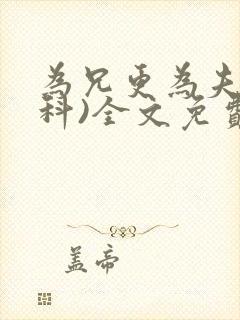 為兄更為夫
科)全文免費
蓋帝